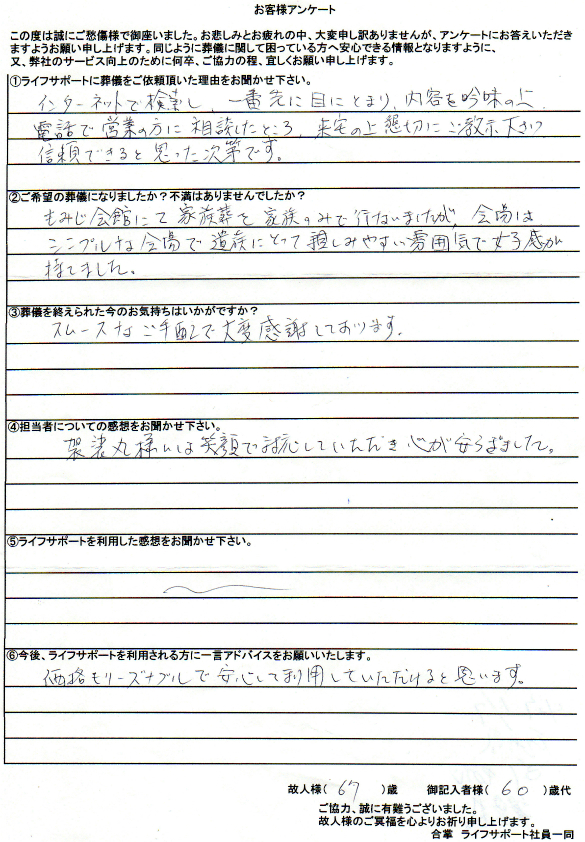 お客様アンケート
この度は誠にご愁傷様で御座いました。お悲しみとお疲れの中、大変申し訳ありませんが、アンケートにお答えいただき
ますようお願い申し上げます。同じように葬儀に関して困っている方へ安心できる情報となりますように、
又、弊社のサービス向上のために何卒、ご協力の程、宜しくお願い申し上げます。
①ライフサポートに葬儀をご依頼頂いた理由をお聞かせ下さい。
インターネットで検索し、一番先に目にとまり、内容を吟味の上、
電話で営業の方に相談したところ、来宅の上懇切にご教示下さり
信頼できると思った次第です。
②ご希望の葬儀になりましたか？不満はありませんでしたか？
もみじ会館にて家族葬を家族のみで行ないましたが、会場は
シンプルな会場で遺族にとって親しみやすい雰囲気で好感が
持てました。
③葬儀を終えられた今のお気持ちはいかがですか？
スムースなご手配で大変感謝しております。
④担当者についての感想をお聞かせ下さい。
袈裟丸様には笑顔で対応していただき心が安らぎました。
⑤ライフサポートを利用した感想をお聞かせ下さい。
⑥今後、ライフサポートを利用される方に一言アドバイスをお願いいたします。
価格もリーズナブルで安心して利用していただけると思います。
故人様( 67 )歳 御記入者様( 60 )歳代
ご協力、誠に有難うございました。
故人様のご冥福を心よりお祈り申し上げます。
合掌 ライフサポート社員一同